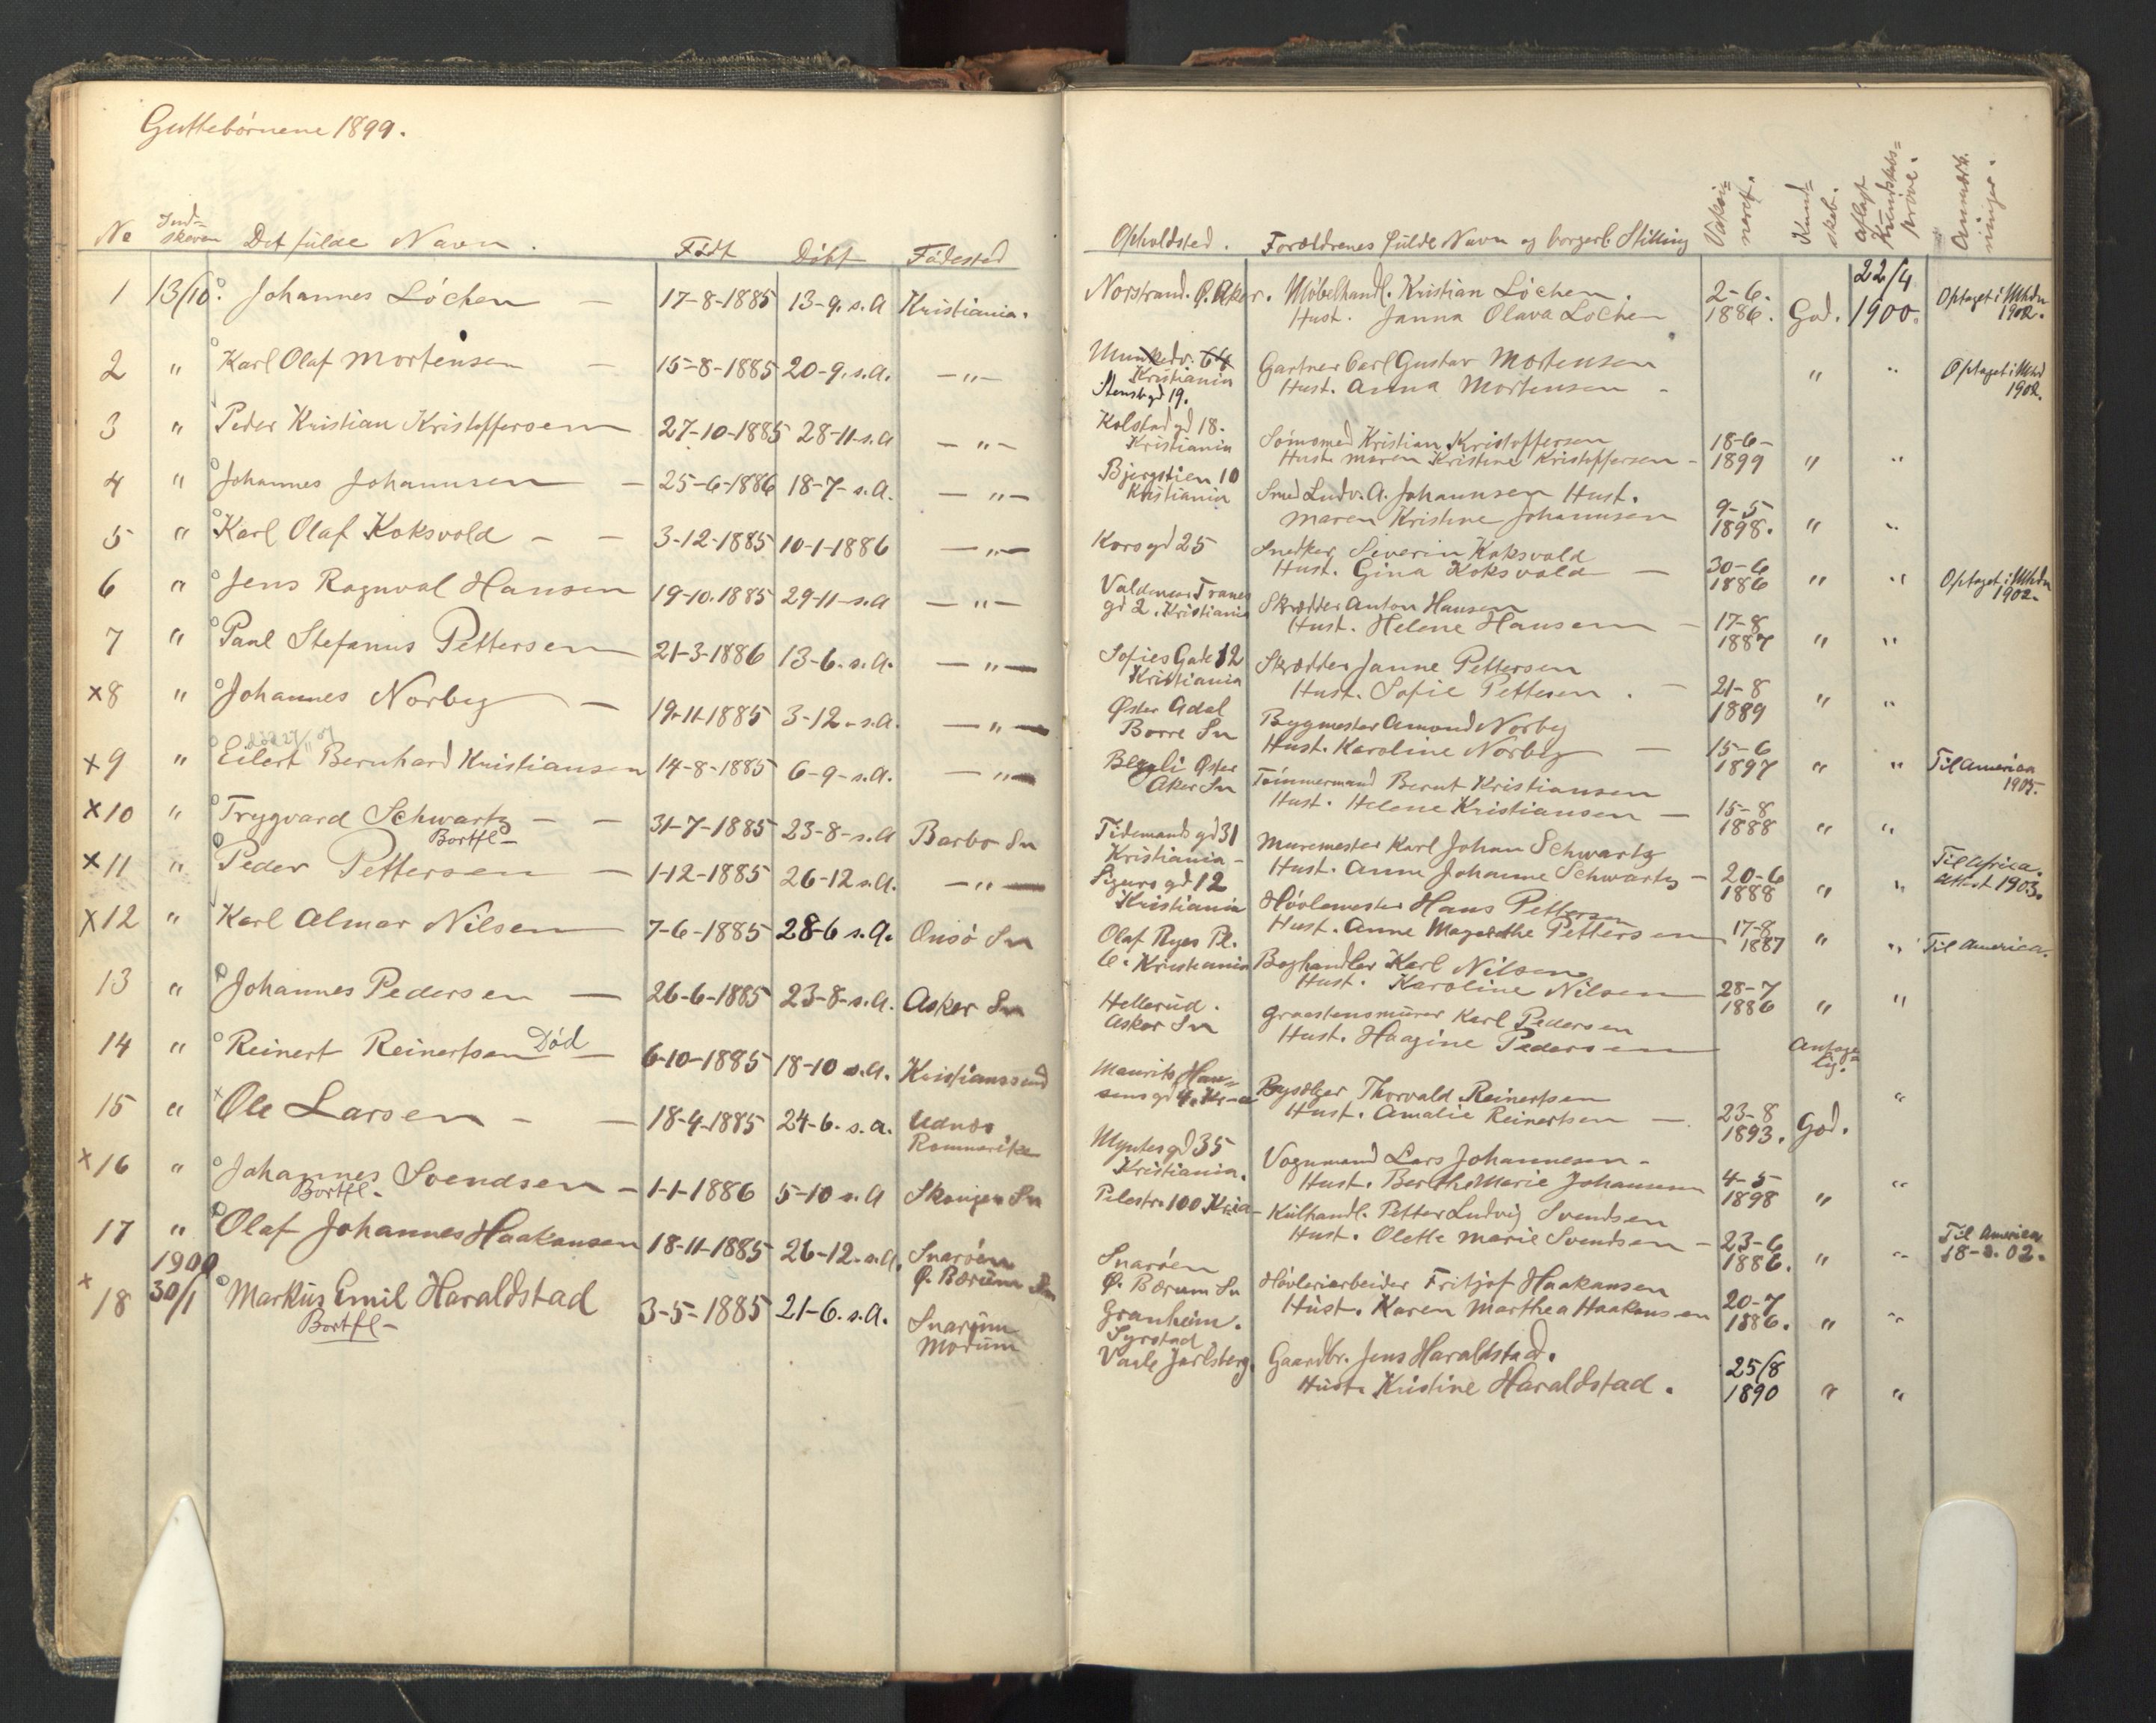 Guttebørnene 1899.
No Ind= skreven Det fulde Navn. Født Døbt Fødested
1 13/10. Johannes Løchen — 17-8-1885 13-9. s.A Kristiania.
2 " Karl Olaf Mortensen — 15-8-1885 20-9. s.A. — " —
3 " Peder Kristian Kristoffersen 27-10-1885 28-11-s.A — " —
4 " Johannes Johannsen — 25-6-1886 18-7-s.A. — " —
5 " Karl Olaf Koksvold — — 3-12-1885 10-1-1886 — " —
6 " Jens Ragnval Hansen 19-10.1885 29-11-s.A — " —
7 " Paul Stefanus Pettersen 21-3-1886 13-6. s.A. — " —
x8 " Johannes Norbey — 19-11-1885 3-12-s.A. — " —
x9 " Eilert Bernhard Kristiansen 14-8-1885 6-9-s.A. — " —
x10 " Trygvard Schwartz — — 31-7-1885 23-8-s.A Barbo Sn
Bortfl-
x11 " Peder Pettersen — 1-12-1885 26-12 s.A. — " —
x12 " Karl Almar Nilsen 7-6-1885 28-6 s.A. Onsø Sn
13 " Johannes Pedersen — 26-6-1885 23-8-s.A. Asker Sn
14 " Reinert Reinertsen Död — 6-10-1885 18-10 s.A. Kristianssund
15 " Ole Larsen — — 18-4-1885 24-6. s.a. Udnæs Rommerike
x16 " Johannes Svendsen — 1-1-1886 5-10 s.A Skouger Sn
Bortfl-
17 " Olaf Johannes Haakansen 18-11-1885 26-12-s.A. Snarøen Ø. Bærum Sn
1900
x 18 30/1 Markus Emil Haraldstad 3-5-1885 21-6. s.A. Snarum Modum
Bortfl-
Opholdsted. Forældrenes fulde Navn og borgerl. Stilling Vaksi= neret. Kund= skab. Aflagt Kundskabs= prøve. Anmærk. ninger.
Norstrand. Ø. Aker. Møbelhandl. Kristian Løchen. 2-6- 22/4 Optaget i Mhdn
Hust. Janna Olava Løchen 1886. God. 1900. 1902.
Munkedv. 64 Gartner Carl Gustav Mortensen
Kristiania Hust. Anna Mortensen - " " Optaget i Mhd
Stensbgd 19. 1902.
Kolstad gd 18. Sømsmed Kristian Kristoffersen 18-6-
Kristiania Hust. Maren Kristine Kristoffersen - 1899 " "
Bjergstien 10 Smed Ludv. A. Johannsen Hust. 9-5
Kristiania Maren Kristine Johannsen 1898. " "
Kors gd 25 Snedker Siverin Koksvold 30-6
Hust. Gina Koksvold — 1886 " " Optaget i Mhdn 1902.
Valdemar Tranes Skrædder Anton Hansen 17-8
gd 2. Kristiania Hust. Helene Hansen — 1887 " "
Sofies Gade 12 Skrædder Janne Pettersen 21-8
Kristiania Hust. Sofie Pettersen. — 1889 " "
Øster Adal Bygmester Amond Norbey 15-6
Borre Sn Hust. Karoline Norbey — 1897 " " Til America 1905.
Øster Tømmermand Bernt Kristiansen 15-8
Aker Sn Hust. Helene Kristiansen — 1888 " "
Tidemands gd 31 Muremester Karl Johan Schwartz 20-6 Til Africa.
Kristiania - Hust. Anne Johanne Schwartz - 1888 " " Attest 1903.
Sigurs gd 12 Høvlemester Hans Pettersen 17-8
Kristiania Hust. Anne Magrethe Pettersen 1887 " " Til America.
Olaf Ryes Pl. Boghandler Karl Nilsen 28-7
6. Kristiania Hust. Karoline Nilsen 1886 " "
Hellerud. Graastensmurer Karl Pedersen
Asker Sn Hust. Haagine Pedersen Antage= lig. "
Maurits Han= Bysælger Thorvald Reinertsen 23-8
sens gd 4. Kr-a Hust. Amalie Reinertsen — 1893. God.
Myntes gd 35 Vognmand Lars Johannesen - 4-5
Kristiania. Hust. Berthe Marie Johannsen 1898 " "
Pilestr. 100 Kria- Kulhandl. Petter Ludvig Svendsen 23-6 Til America
Hust. Olette Marie Svendsen - 1886. " " 18-3.02.
Snarøen Høvleriarbeider Fritjof Haakansen 20-7
Ø. Bærum Sn Hust. Karen Marthea Haakansen 1886. " "
Granheim. Gaardbr. Jens Haraldstad. 25/8
Syrstad Hust. Kristine Haraldstad. 1890 " "
Vaale Jarlsberg.